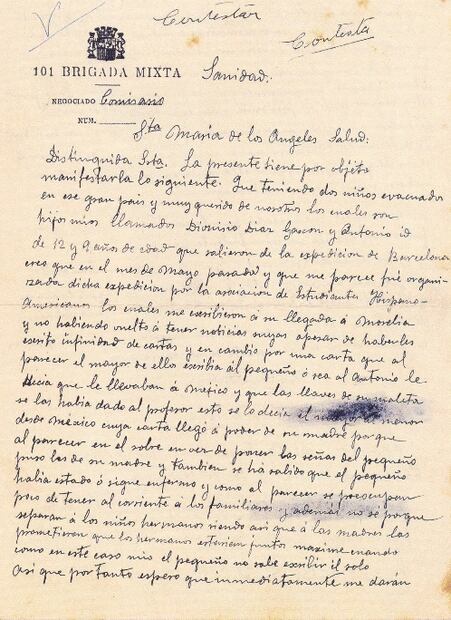 Contestar
Contesta
101 BRIGADA MIXTA
Sanidad.
NEGOCIADO Comisario
NUM.
Sta Maria de los Angeles Salud:
Distinguida Srta. La presente tiene por objeto
manifestarla lo siguiente. Que teniendo dos niños evacuados
en ese gran pais y muy querido de nosotros los cuales son
hijos mios llamados Dionisio Diaz Gascon y Antonio id
de 12 y 9 años de edad que salieron de la expedicion de Barcelona
creo que en el mes de Mayo pasado y que me parece fué organi-
zada dicha expedicion por la asociacion de Estudiantes Hispano-
Americanos los cuales me escribieron á su llegada á Morelia
y no habiendo vuelto á tener noticias suyas apesar de haberles
escrito infinidad de cartas y en cambio por una carta que al
parecer el mayor de ellos escribia al pequeño ó sea al Antonio le
decia que le llevaban á Mexico y que las llaves de su maleta
se las habia dado al profesor esto se lo decia el mayor al menor
desde Mexico cuya carta llegó á poder de su madre porque
al parecer en el sobre en vez de poner las señas del pequeño
puso las de su madre y tambien se há sabido que el pequeño
habia estado ó sigue enfermo y como al parecer se preocupan
poco de tener al corriente á los familiares y además no se porque
separan á los niños hermanos siendo asi que á las madres las
prometieron que los hermanos estarian juntos maxime cuando
como en este caso mio el pequeño no sabe escribir el solo
Asi que por tanto espero que inmediatamente me darán